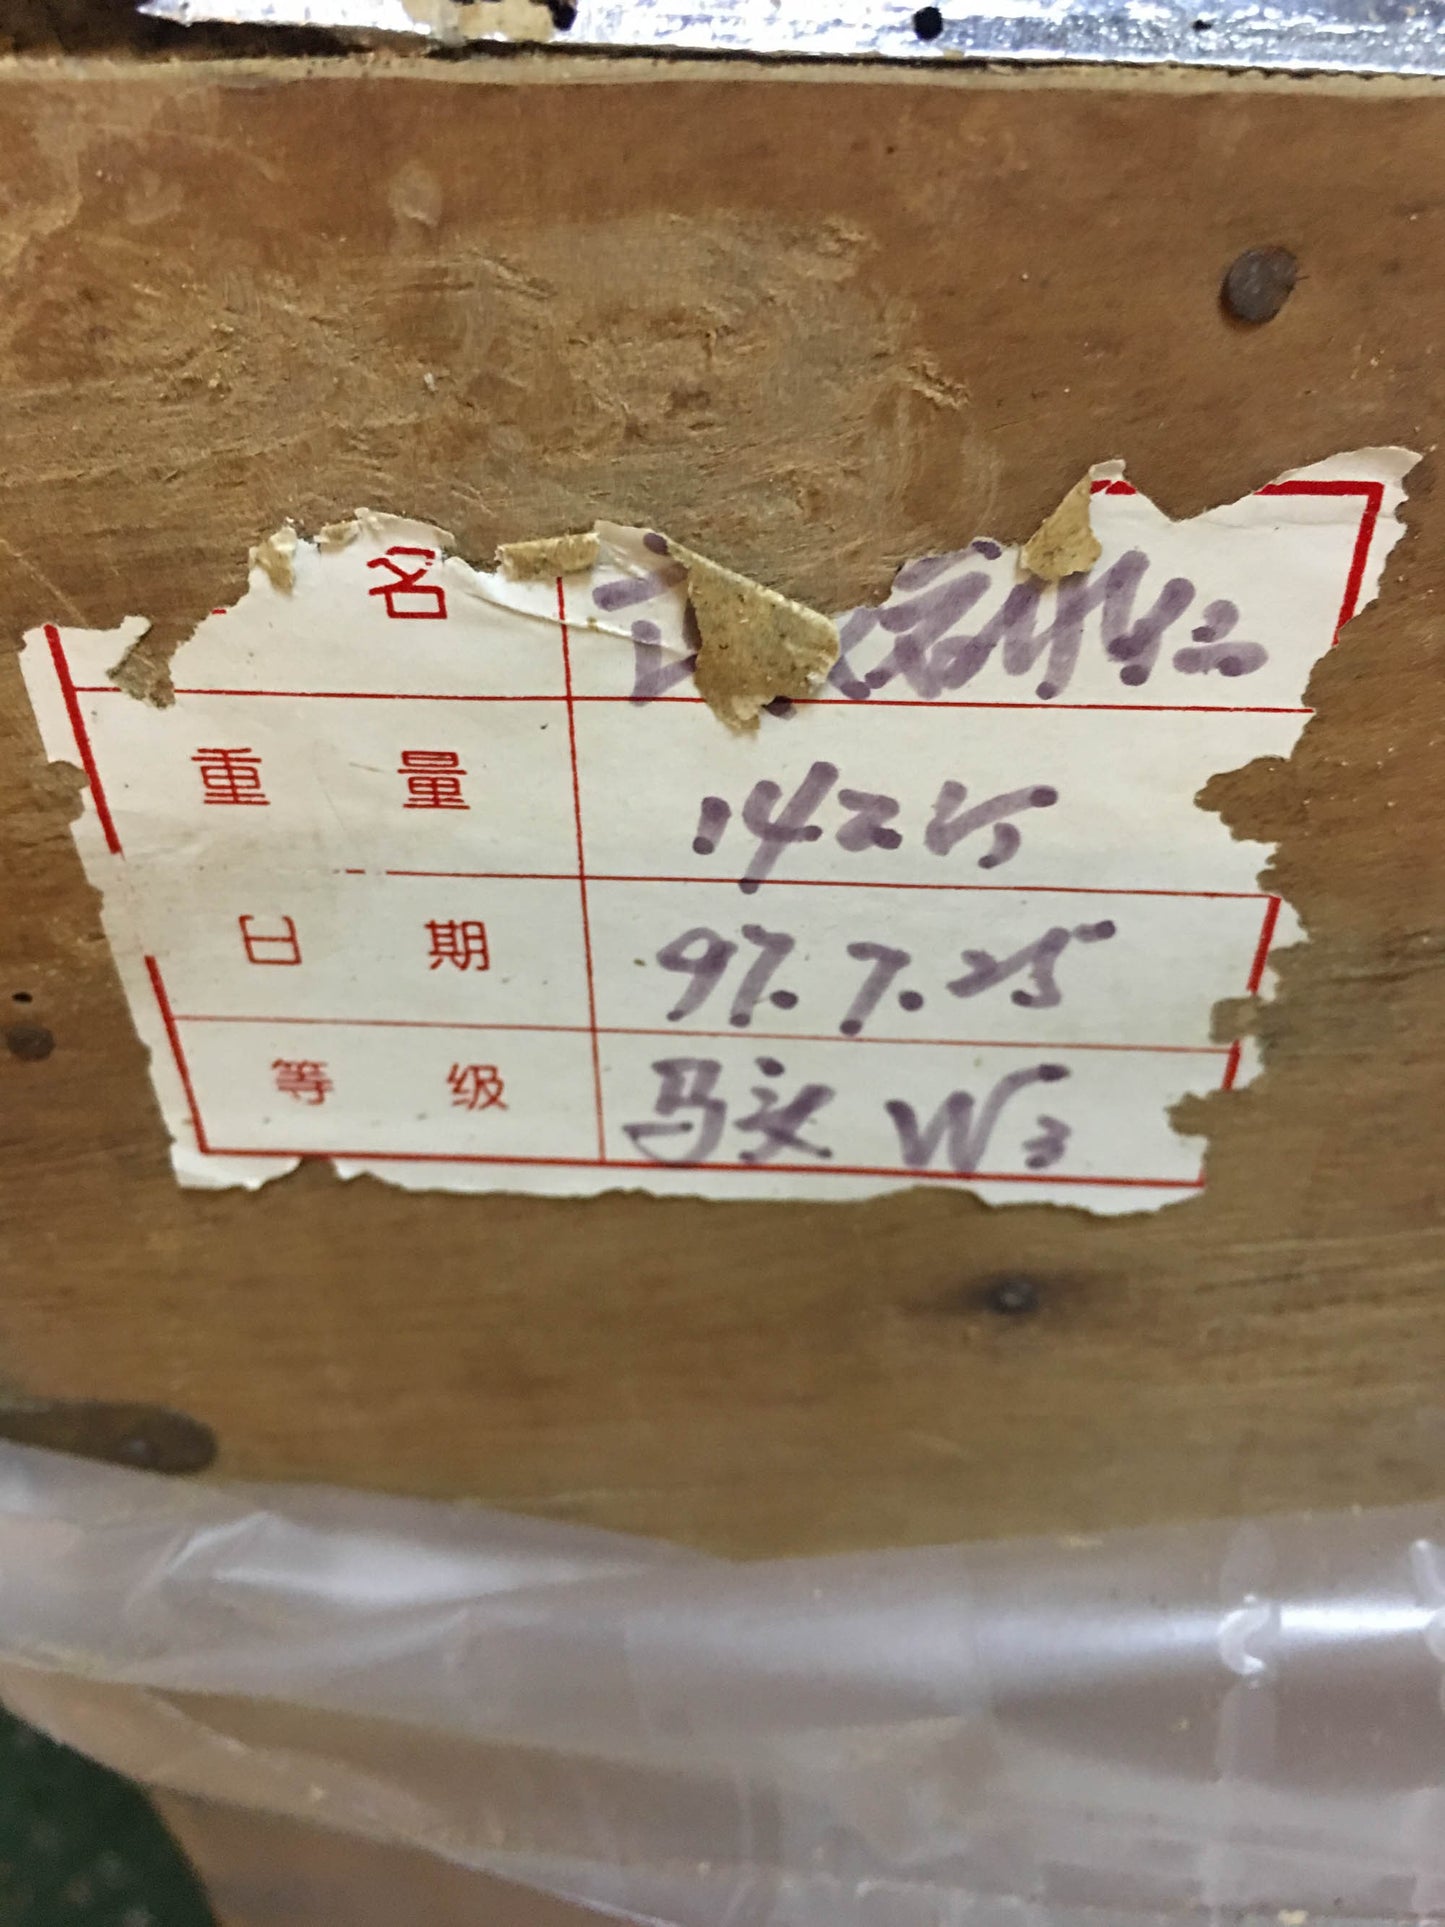 名
重量 1425
日期 97.7.25
等级 马头 W3